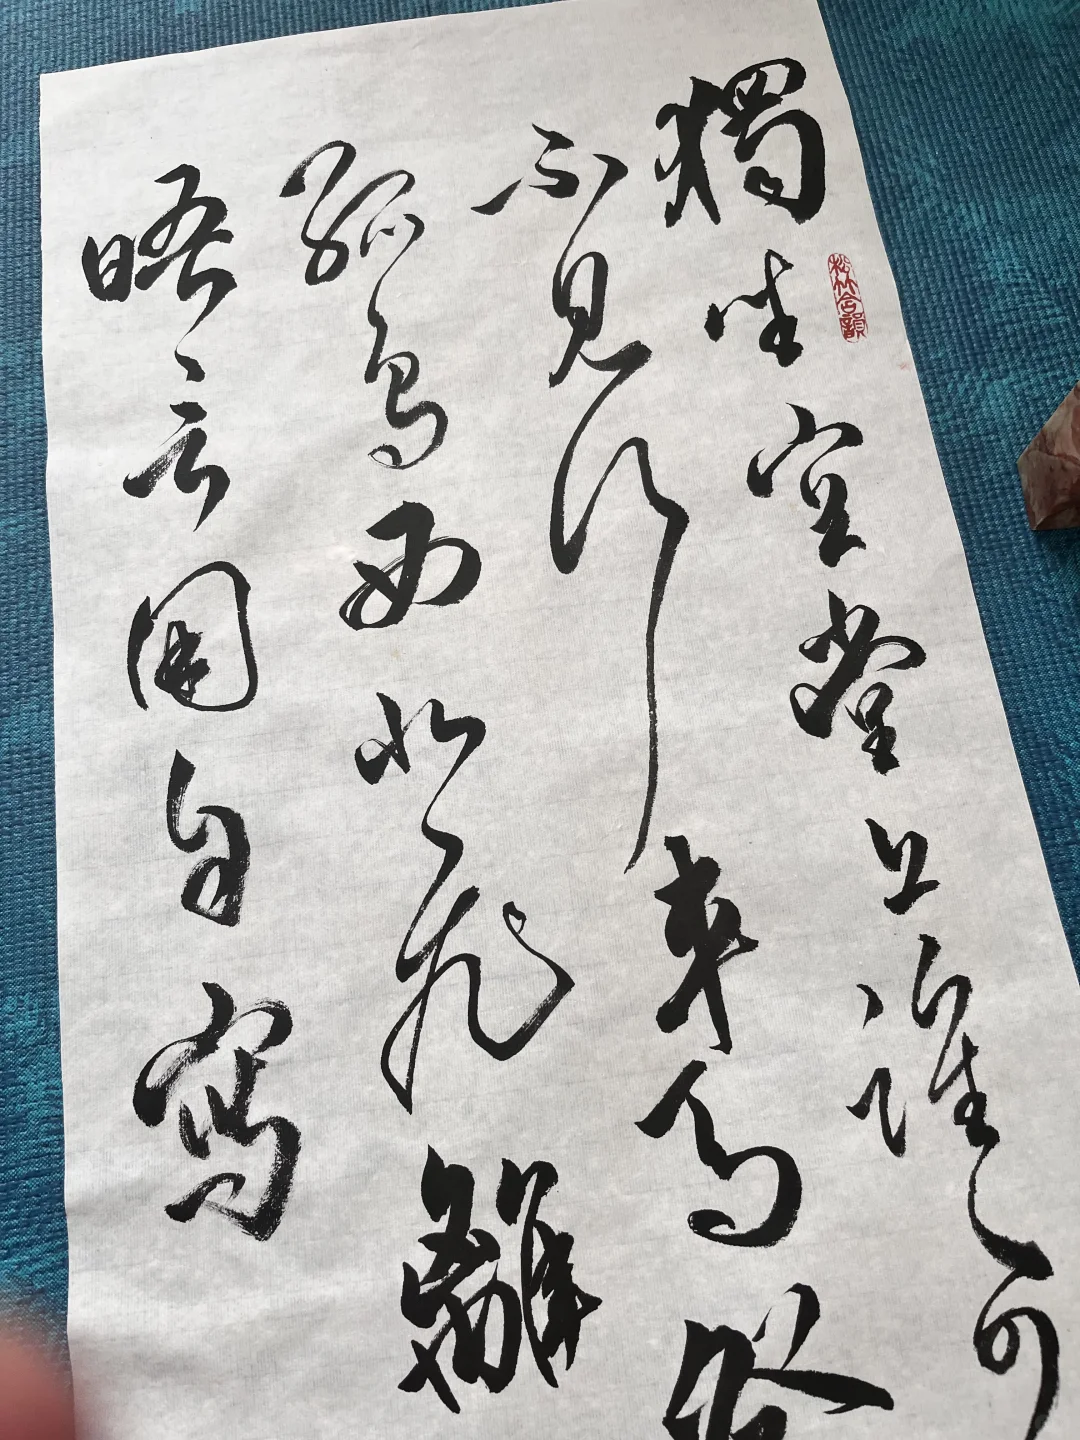 獨坐空堂上誰可
不見行車馬登
孤鳥西北飛離
晤言用自寫
松竹韻